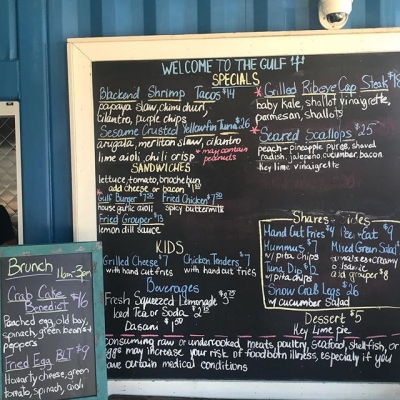 WELCOME TO THE GULF
SPECIALS
Blackend Shrimp Tacos $14
papaya slaw, chimi churi,
cilantro, purple chips
Sesame Crusted Yellowfin Tuna $26
arugala, merliton slaw, cilantro
lime aioli, chili crisp
* may contain
peanuts
* Grilled Ribeye Cap Steak
baby kale, shallot vinaigrette,
parmesan, shallots
* Seared Scallops $25
peach-pineapple puree, shaved
radish, jalapeño, cucumber, bacon
key lime vinaigrette
SANDWICHES
lettuce, tomato, brioche bun
add cheese or bacon $1.50
* Gulf Burger
house garlic aioli
Fried Chicken
spicy buttermilk
Fried Grouper $13
lemon dill sauce
KIDS
Grilled Cheese $7
with hand cut fries
Chicken Tenders $7
with hand cut fries
Beverages
Fresh Squeezed Lemonade
Iced Tea or Soda
Dasani
Shares
Hand Cut Fries $4
Hummus $7
w/ pita chips
Tuna Dip
w/ pita chips
Mixed Green Salad
add grouper $8
Snow Crab Legs $26
w/ cucumber salad
Dessert $5
Key Lime pie
consuming raw or undercooked meats, poultry, seafood, shellfish, or
eggs may increase your risk of foodborn illness, especialy if you
have certain medical conditions
Brunch
11am-3pm
Crab Cake $16
Benedict
Poached egg, old bay,
spinach, green beans +
peppers
Fried Egg BLT $9
Havarty cheese, green
tomato, spinach, aioli